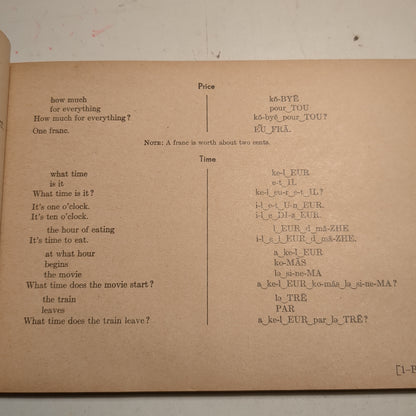 Price
how much kō-BYĒ
for everything pour_TOU
How much for everything? kō-byē_pour_TOU?
One franc. EÜ_FRĀ.
NOTE: A franc is worth about two cents.
Time
what time ke-l_EUR
is it e-t_IL
What time is it? ke-l_eu-r_e-t_IL?
It's one o'clock. i-l_e-t_U-n_EUR.
It's ten o'clock. i-l_e_DI-z_EUR.
the hour of eating l_EUR_d_mā-ZHE
It's time to eat. i-l_e_l_EUR_d_mā-ZHE.
at what hour a_ke-l_EUR
begins ko-MĀS
the movie lə_si-ne-MA
What time does the movie start? a_ke-l_EUR_ko-mās_lə_si-ne-MA?
the train lə_TRĒ
leaves PAR
What time does the train leave? a_ke-l_EUR_par_lə_TRĒ?